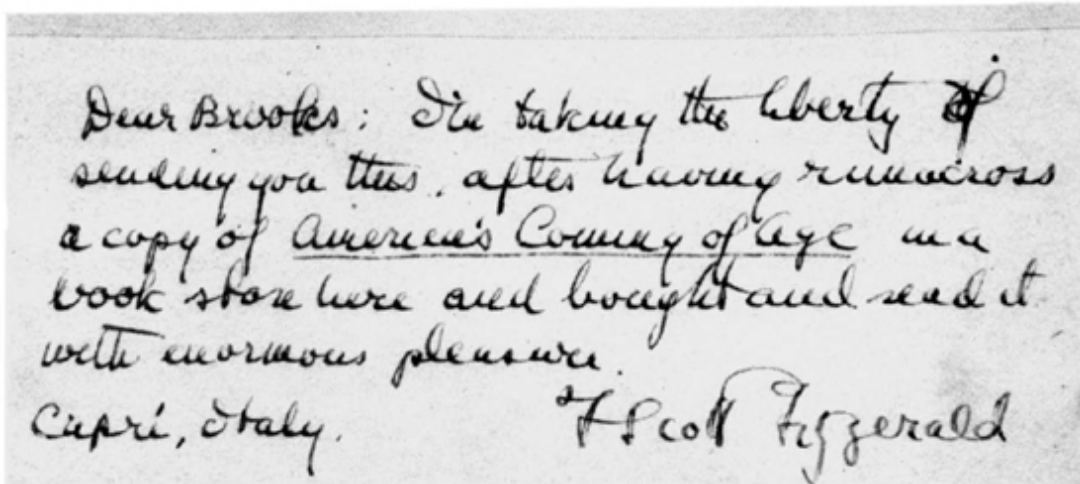 Dear Brooks: I'm taking the liberty of
sending you this, after having run across
a copy of America's Coming of Age in a
book store here and bought and read it
with enormous pleasure.
Capri, Italy.
F Scott Fitzgerald